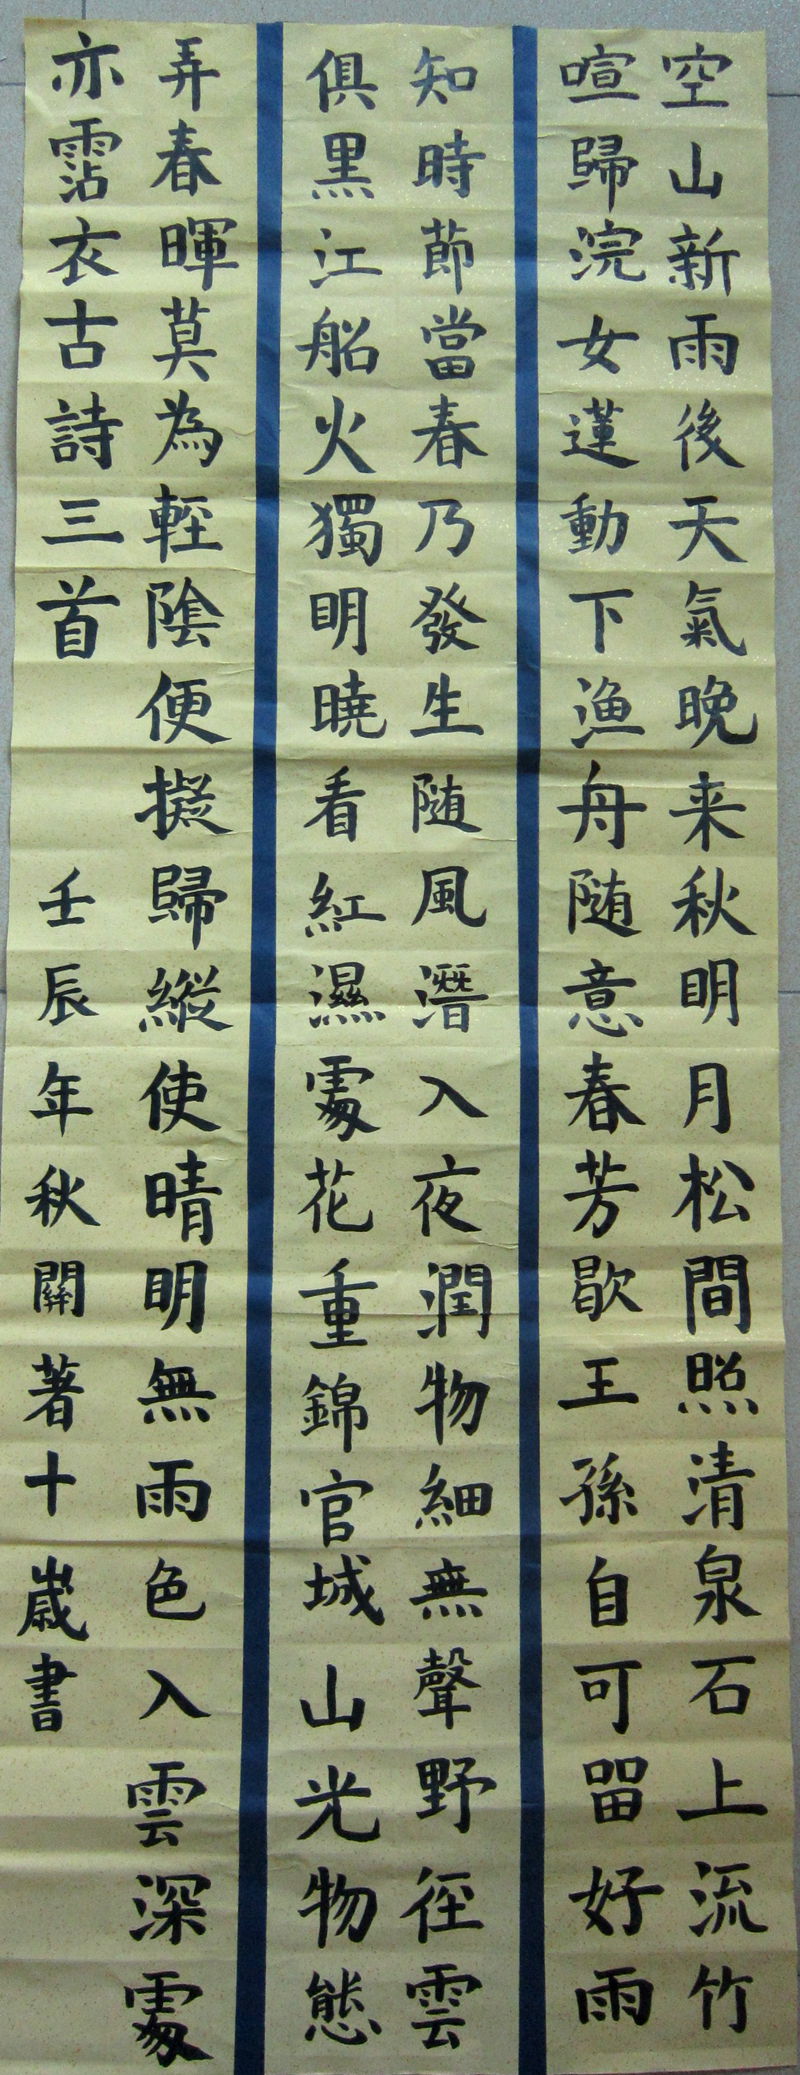 空山新雨後天氣晚来秋明月松間照清泉石上流竹
喧歸浣女蓮動下漁舟随意春芳歇王孫自可留好雨
知時節當春乃發生随風潛入夜潤物細無聲野徑雲
俱黑江船火獨明曉看紅濕處花重錦官城山光物態
弄春暉莫為輕陰便擬歸縱使晴明無雨色入雲深處
亦霑衣古詩三首
壬辰年秋關著十歲書